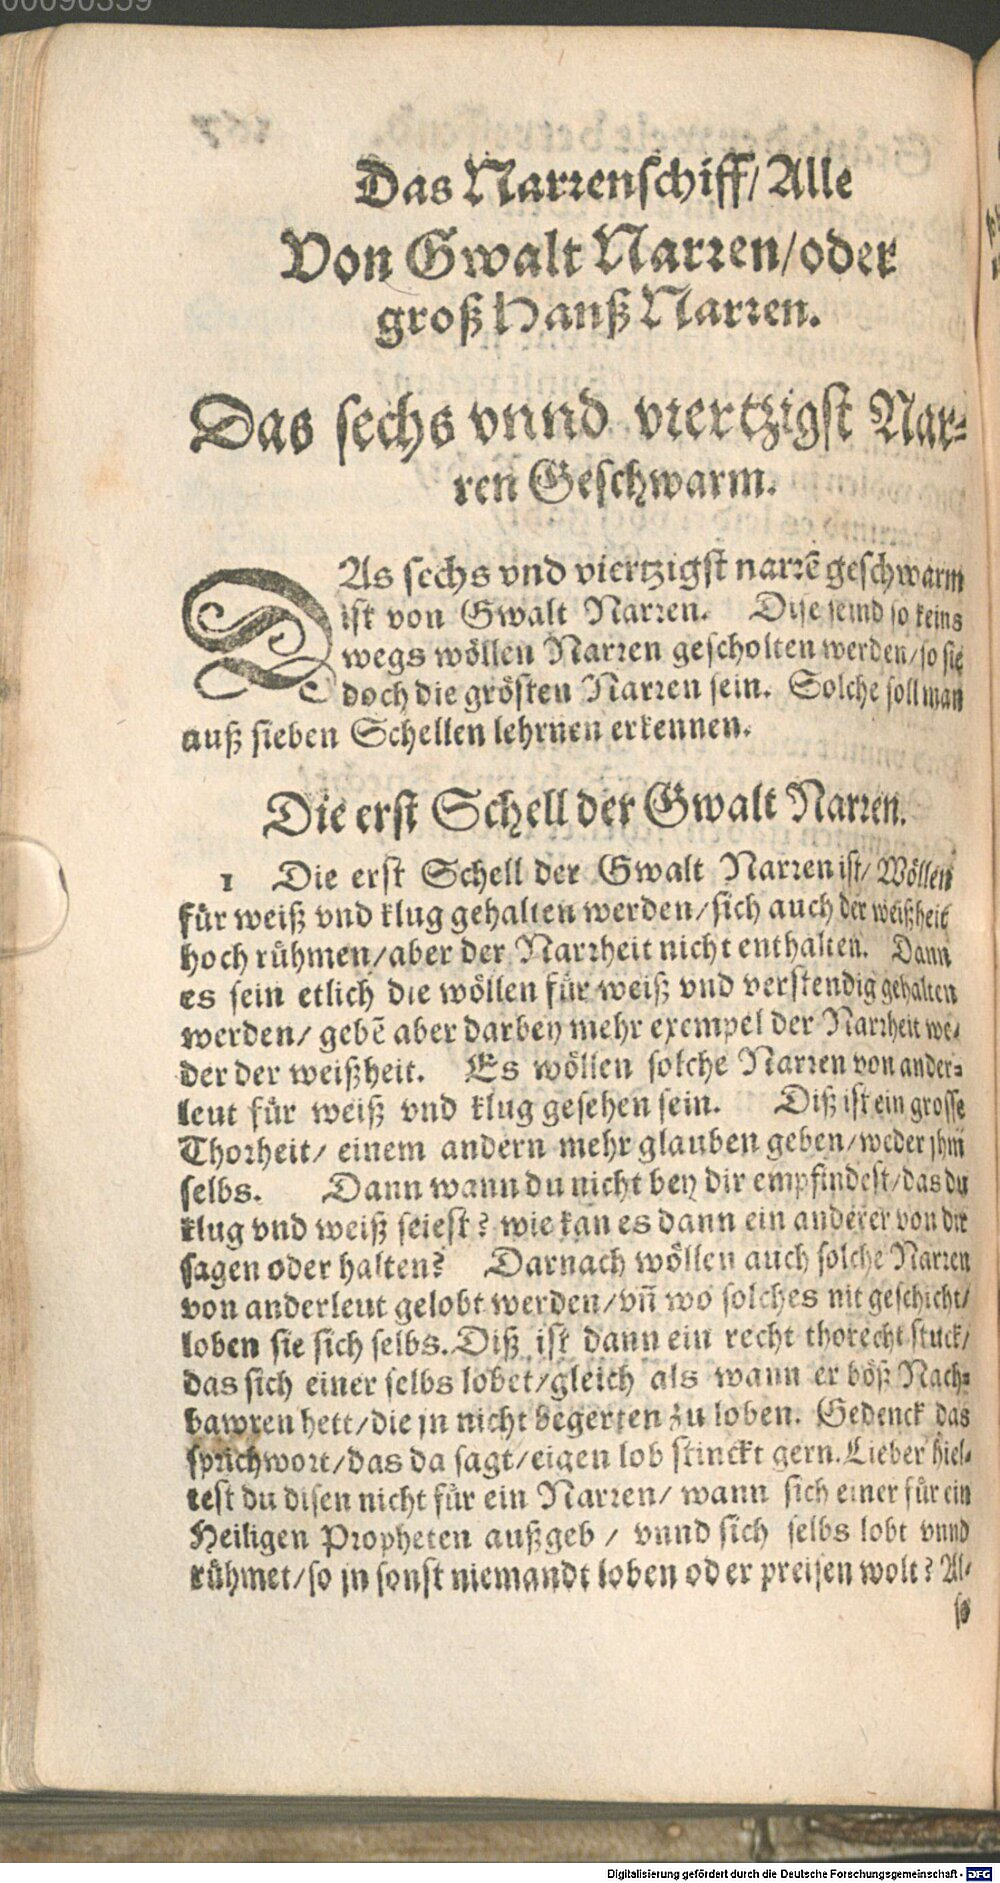 00090359
Das Narrenschiff/ Alle
Von Gwalt Narren/ oder
groß Hanß Narren.
Das sechs vnnd viertzigst Nar-
ren Geschwarm.
DAs sechs vnd viertzigst narrē geschwarm
ist von Gwalt Narren. Dise seind so keins
wegs wöllen Narren gescholten werden/ so sie
doch die grösten Narren sein. Solche soll man
auß sieben Schellen lehrnen erkennen.
Die erst Schell der Gwalt Narren.
1 Die erst Schell der Gwalt Narren ist/ Wöllen
für weiß vnd klug gehalten werden/ sich auch der weißheit
hoch rühmen/ aber der Narrheit nicht enthalten. Dann
es sein etlich die wöllen für weiß vnd verstendig gehalten
werden/ gebē aber darbey mehr exempel der Narrheit we-
der der weißheit. Es wöllen solche Narren von ander-
leut für weiß vnd klug gesehen sein. Diß ist ein grosse
Thorheit/ einem andern mehr glauben geben/ weder jhm
selbs. Dann wann du nicht bey dir empfindest/ das du
klug vnd weiß seiest? wie kan es dann ein anderer von dir
sagen oder halten? Darnach wöllen auch solche Narren
von anderleut gelobt werden/ vñ wo solches nit geschicht/
loben sie sich selbs. Diß ist dann ein recht thorecht stuck/
das sich einer selbs lobet/ gleich als wann er böß Nach-
bawren hett/ die jn nicht begerten zu loben. Gedenck das
sprichwort/ das da sagt/ eigen lob stinckt gern. Lieber hiel-
test du disen nicht für ein Narren/ wann sich einer für ein
Heiligen Propheten außgeb/ vnnd sich selbs lobt vnnd
rühmet/ so jn sonst niemandt loben oder preisen wolt? Al-
so
Digitalisierung gefördert durch die Deutsche Forschungsgemeinschaft - DFG